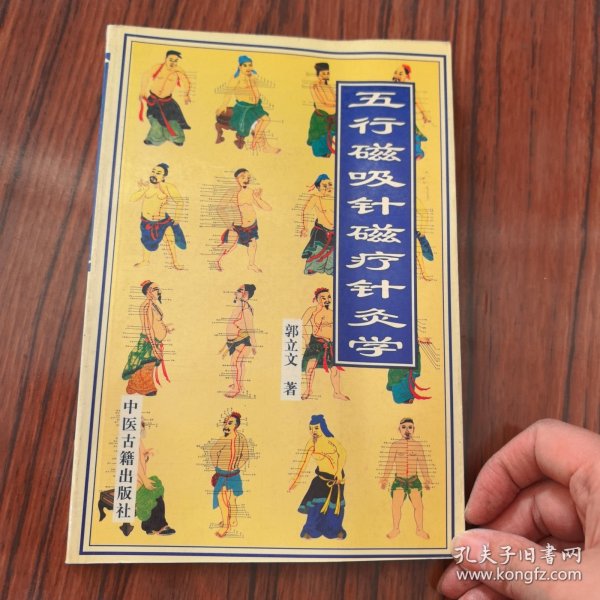 五行磁吸针磁疗针灸学
郭立文 著
中医古籍出版社
孔夫子旧书网
www.kongfz.com